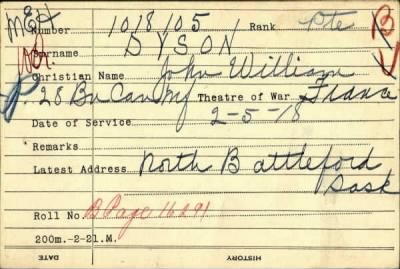 MEH Number 1018105 Rank Pte B
Surname DYSON V
Christian Name John William
P. 28 Bn Can Inf Theatre of War France
Date of Service 2-5-18
Remarks
Latest Address North Battleford
Sask
Roll No. B Page 16291
200m.-2-21.M.
DATE HISTORY